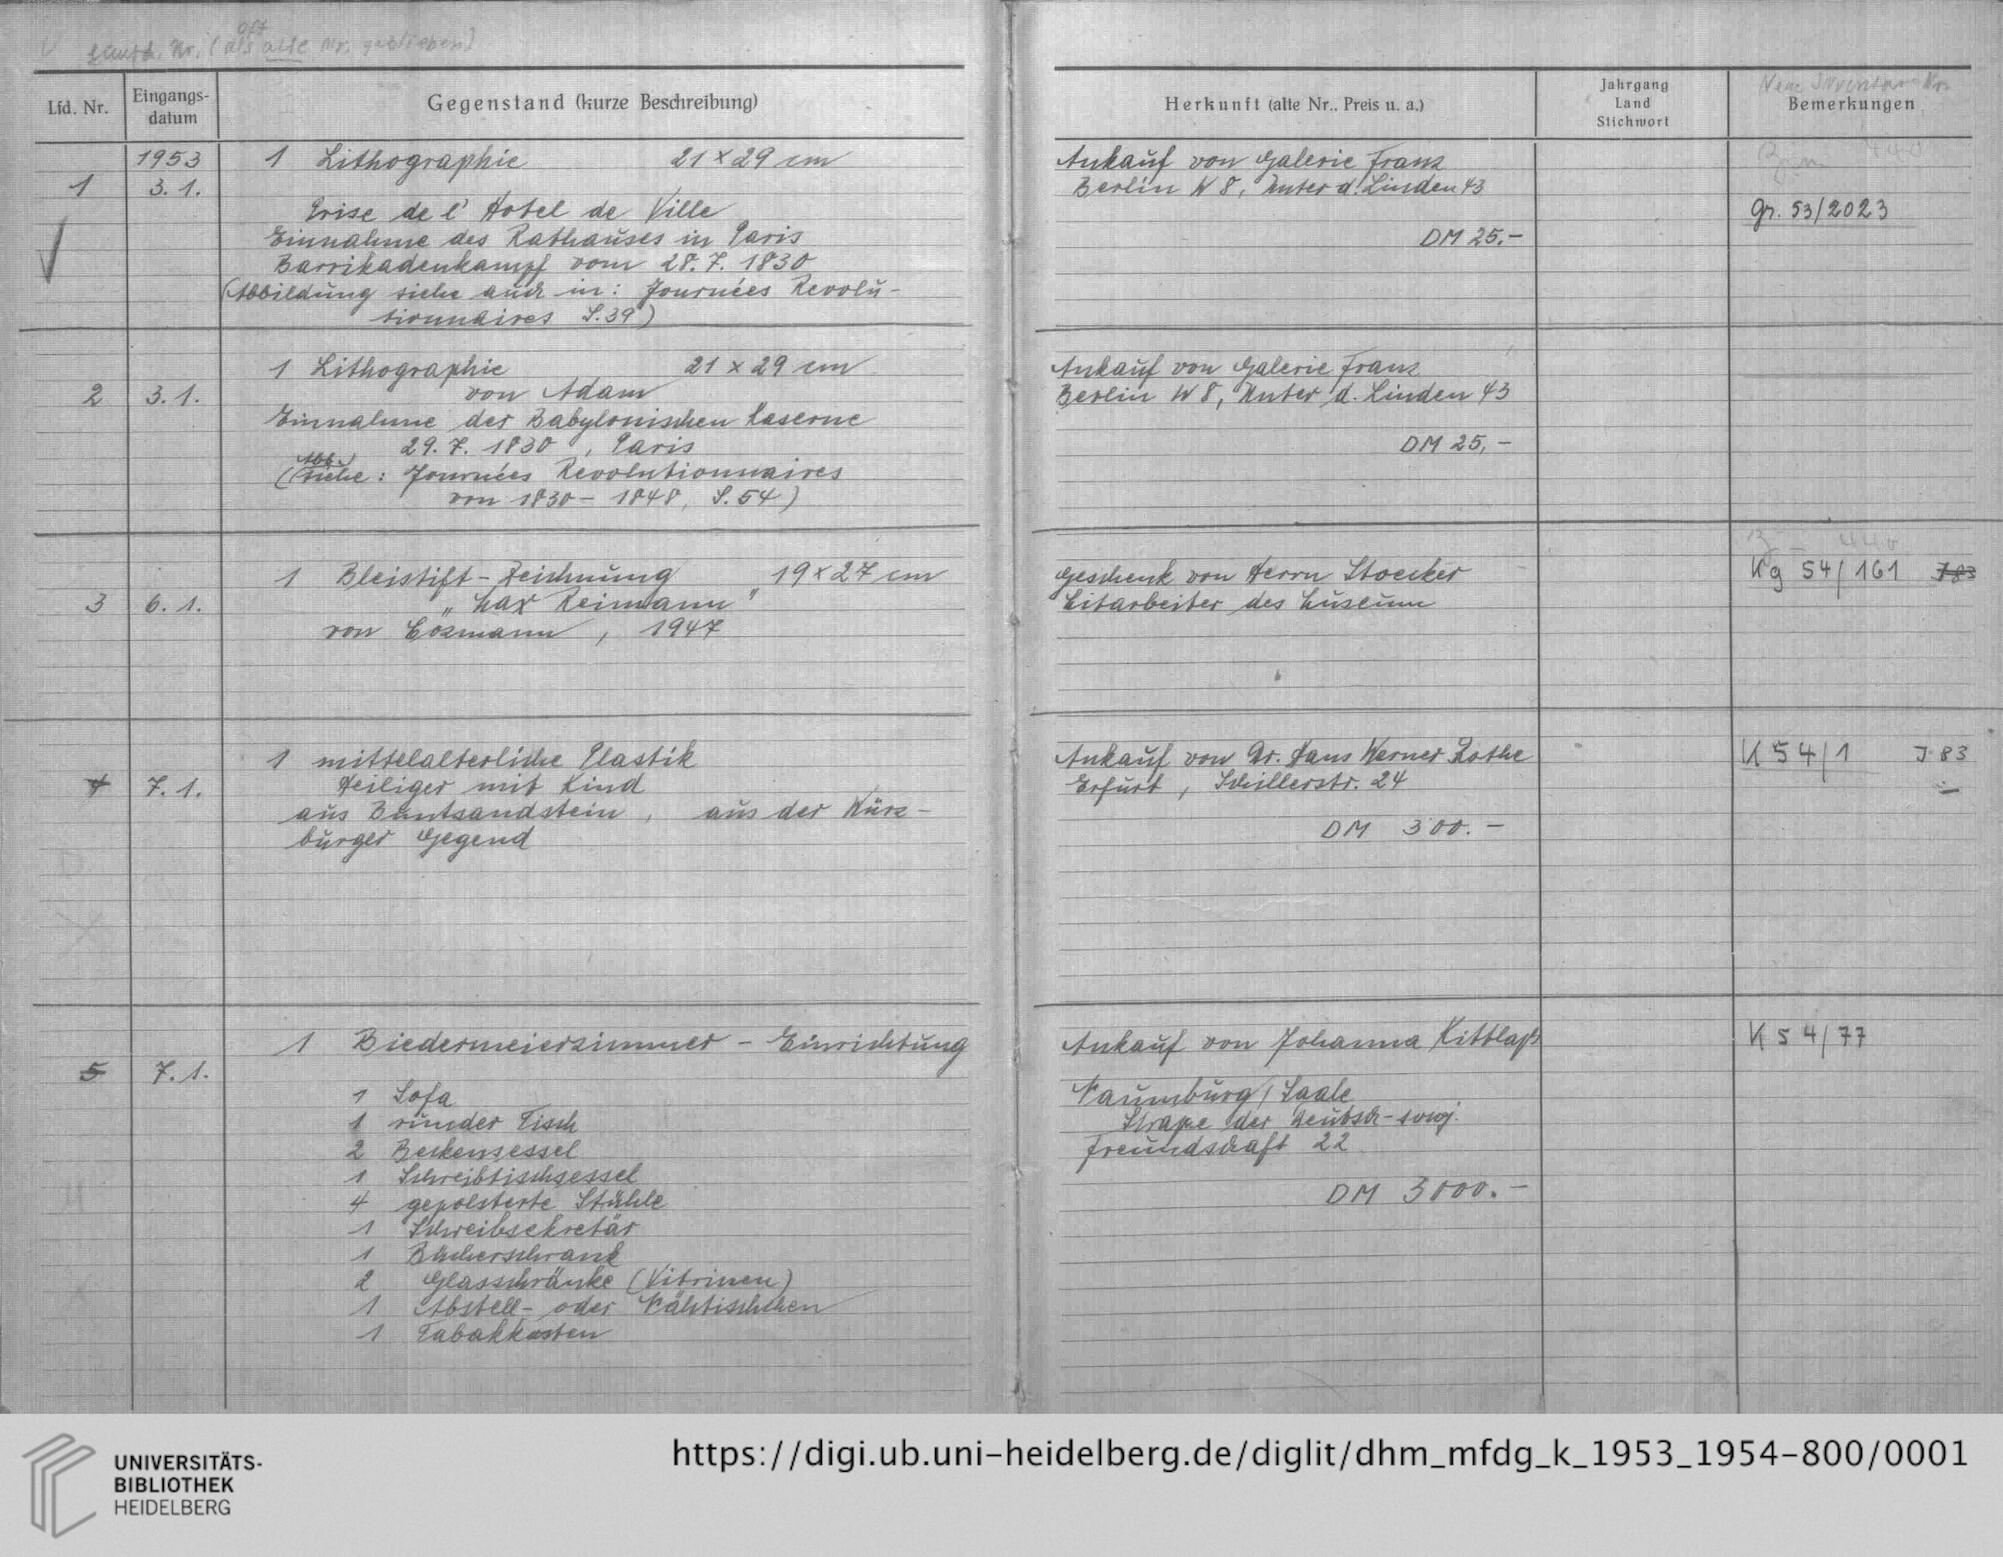 Lfd. Nr.
Eingangs-
datum
Gegenstand (kurze Beschreibung)
1953
1 Lithographie 21 x 29 cm
1 3. 1.
Prise de l' Hotel de Ville
Einnahme des Rathauses in Paris
Barrikadenkampf vom 28. 7. 1830
(Abbildung siehe auch in: Journées Revolu-
tionnaires S. 39)
1 Lithographie 21 x 29 cm
2 3. 1. von Adam
Einnahme der Babylonischen Kaserne
29. 7. 1830, Paris
Abb.
(siehe: Journées Revolutionnaires
von 1830 - 1848, S. 54)
1 Bleistift-Zeichnung 19 x 27 cm
3 6. 1. "Max Reimann"
von Cosmann, 1947
1 mittelalterliche Plastik
4 7. 1. Heiliger mit Kind
aus Buntsandstein, aus der Würz-
burger Gegend
1 Biedermeierzimmer - Einrichtung
5 7. 1.
1 Sofa
1 runder Tisch
2 Beckensessel
1 Schreibtischsessel
4 gepolsterte Stühle
1 Schreibsekretär
1 Bücherschrank
2 Glasschränke (Vitrinen)
1 Abstell- oder Nähtischchen
1 Tabakkasten
Herkunft (alte Nr., Preis u. a.)
Jahrgang
Land
Stichwort
Neue Inventar Nr.
Bemerkungen
Ankauf von Galerie Franz
Berlin W 8, Unter d. Linden 43
gr. 53/2023
DM 25.-
Ankauf von Galerie Franz
Berlin W 8, Unter d. Linden 43
DM 25,-
Geschenk von Herrn Stoecker Kg 54/161 J 83
Mitarbeiter des Museum
Ankauf von Dr. Hans Werner Rothe K 54/1 J 83
Erfurt, Schillerstr. 24
DM 300.-
Ankauf von Johanna Kittlaß K 54/77
Naumburg / Saale
Straße der Deutsch-sowj.
Freundschaft 22
DM 3000.-
UNIVERSITÄTS-
BIBLIOTHEK
HEIDELBERG
https://digi.ub.uni-heidelberg.de/diglit/dhm_mfdg_k_1953_1954-800/0001